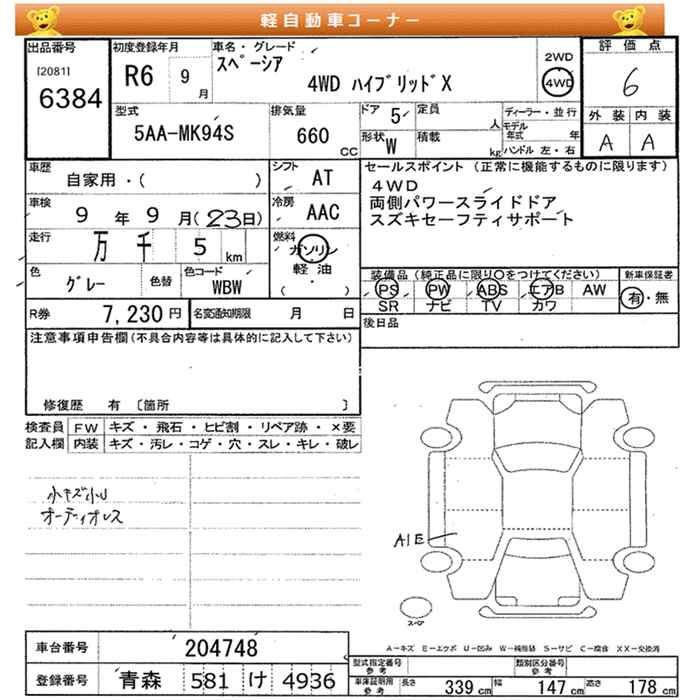 軽自動車コーナー
出品番号
[2081]
6384
初度登録年月
R6 9月
車名・グレード
スペーシア
4WD ハイブリッドX
2WD
4WD
評価点
6
外装 内装
A A
型式
5AA-MK94S
排気量
660 CC
ドア 5
形状 W
定員 人
積載 kg
ディーラー・並行
モデル年式 年
ハンドル 左・右
車歴
自家用・( )
シフト
AT
車検
9年9月(23日)
冷房
AAC
走行
万 千 5 km
燃料
ガソリン
軽油
( ・ )
色
グレー
色替
色コード
WBW
R券 7,230円
名変通知期限 月 日
セールスポイント (正常に機能するものに限ります)
4WD
両側パワースライドドア
スズキセーフティサポート
装備品 (純正品に限り○をつけてください)
PS PW ABS エアB AW
SR ナビ TV カワ
新車保証書
有・無
後日品
注意事項申告欄(不具合内容等は具体的に記入して下さい)
修復歴 有 〔箇所 〕
検査員記入欄
FW キズ・飛石・ヒビ割・リペア跡・×要
内装 キズ・汚レ・コゲ・穴・スレ・キレ・破レ
小キズ小U
オーディオレス
A1E
スペア
A-キズ E-エクボ U-凹み W-補修跡 S-サビ C-腐食 XX-交換済
車台番号 204748
登録番号 青森 581 け 4936
型式指定番号 参考
類別区分番号 参考
車庫証明用 参考 長さ 339cm 幅 147cm 高さ 178cm